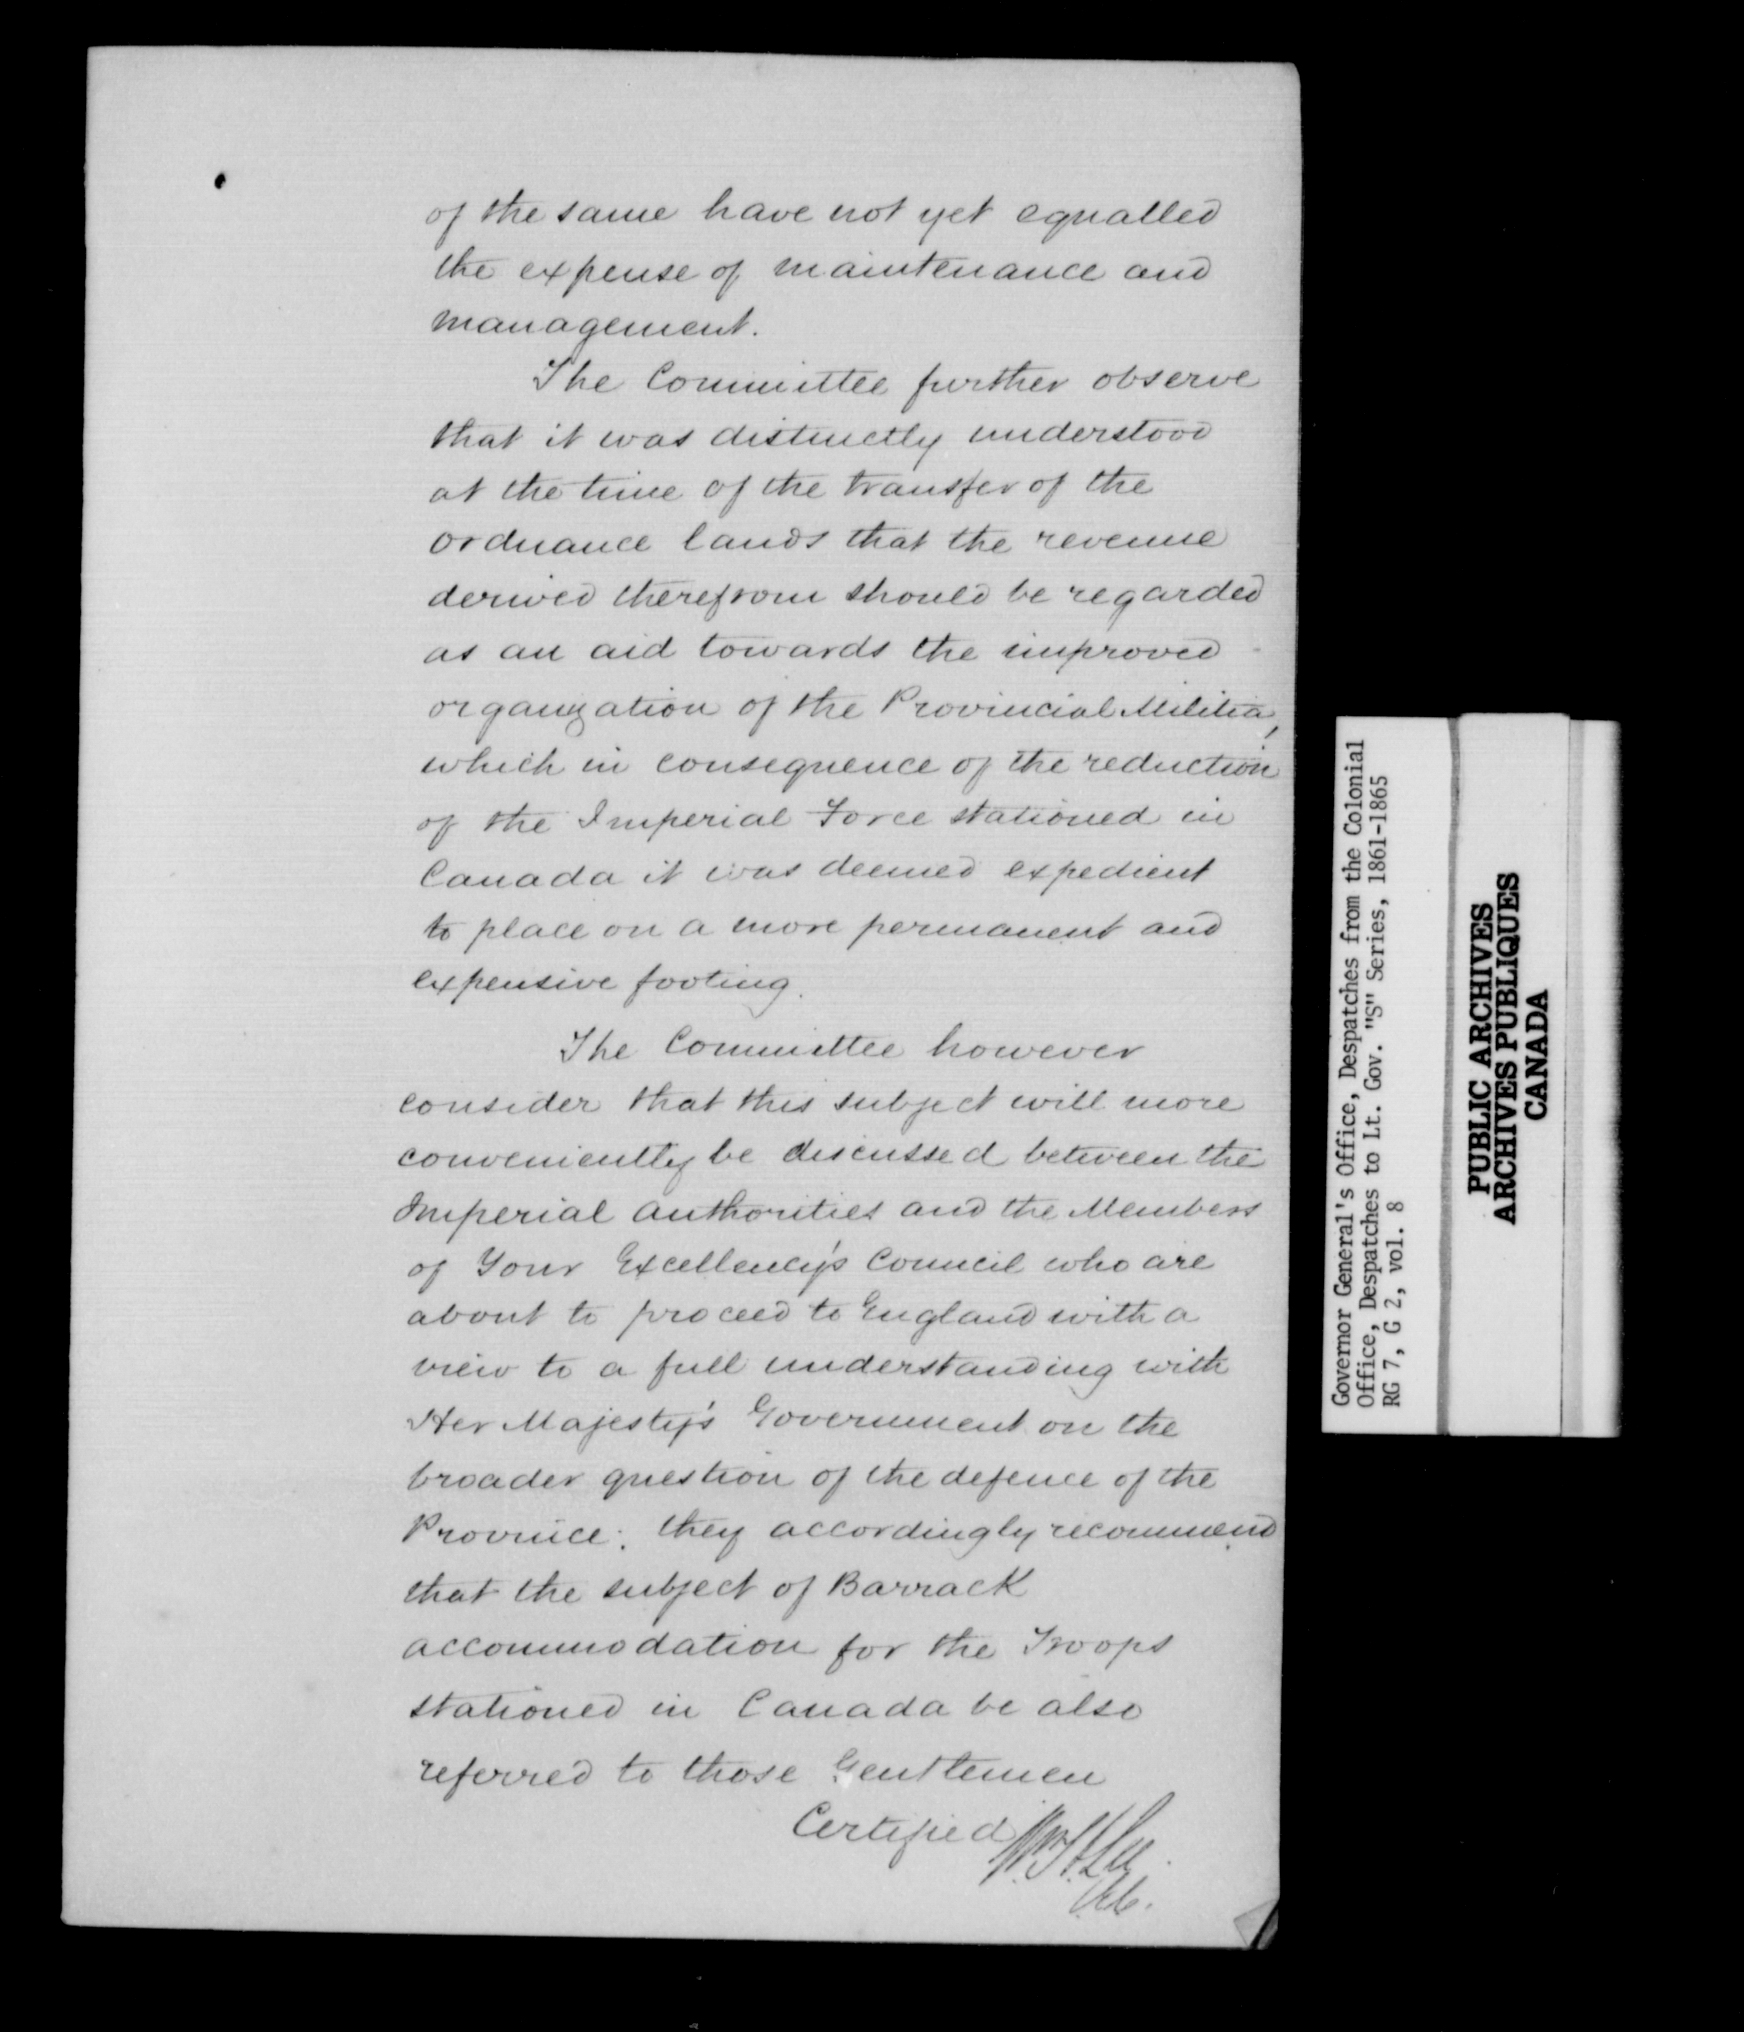 of the same have not yet equalled
the expense of maintenance and
management.
The Committee further observe
that it was distinctly understood
at the time of the transfer of the
ordnance lands that the revenue
derived therefrom should be regarded
as an aid towards the improved
organization of the Provincial Militia,
which in consequence of the reduction
of the Imperial Force stationed in
Canada it was deemed expedient
to place on a more permanent and
expensive footing.
The Committee however
consider that this subject will more
conveniently be discussed between the
Imperial Authorities and the Members
of Your Excellency's Council who are
about to proceed to England with a
view to a full understanding with
Her Majesty's Government on the
broader question of the defence of the
Province; they accordingly recommend
that the subject of Barrack
accommodation for the Troops
stationed in Canada be also
referred to those Gentlemen
Certified
Governor General's Office, Despatches from the Colonial
Office, Despatches to Lt. Gov. "S" Series, 1861-1865
RG 7, G 2, vol. 8
PUBLIC ARCHIVES
ARCHIVES PUBLIQUES
CANADA